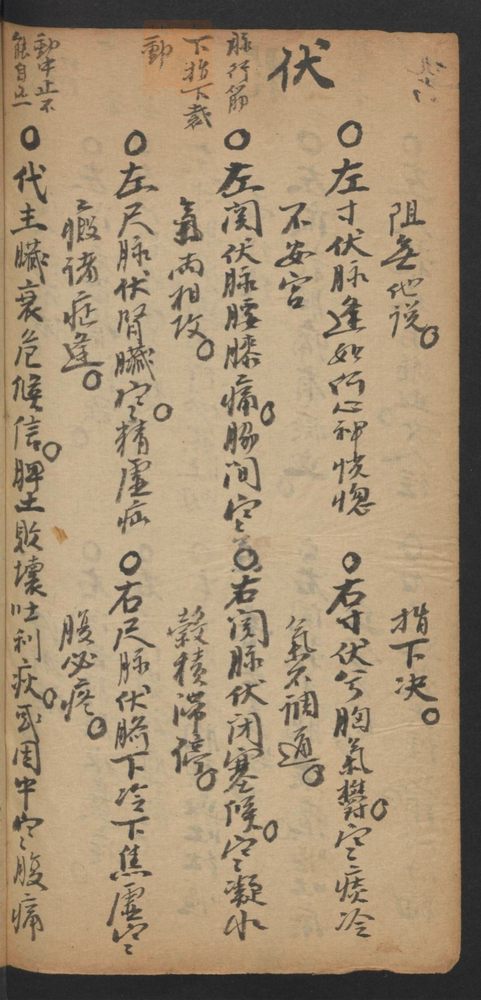 阻無他說。
指下决。
伏
脉行筋
下指下裁
動
○左寸伏脉逢如何心神恍惚
不安宫
○右寸伏兮胸氣欝。定痰冷
氣不調通。
○左関伏脉腰膝痛。脇间定
氣両相攻。
○右関脉伏闭塞候。定凝水
穀積滞停。
○左尺脉伏腎臟定。精虚疝
瘕诸症逢。
○右尺脉伏臍下冷下焦虚定
腹必疼。
動中止不
能自还
○代主臟衰危候信。脾土敗壊吐利疾。或因中定腹痛